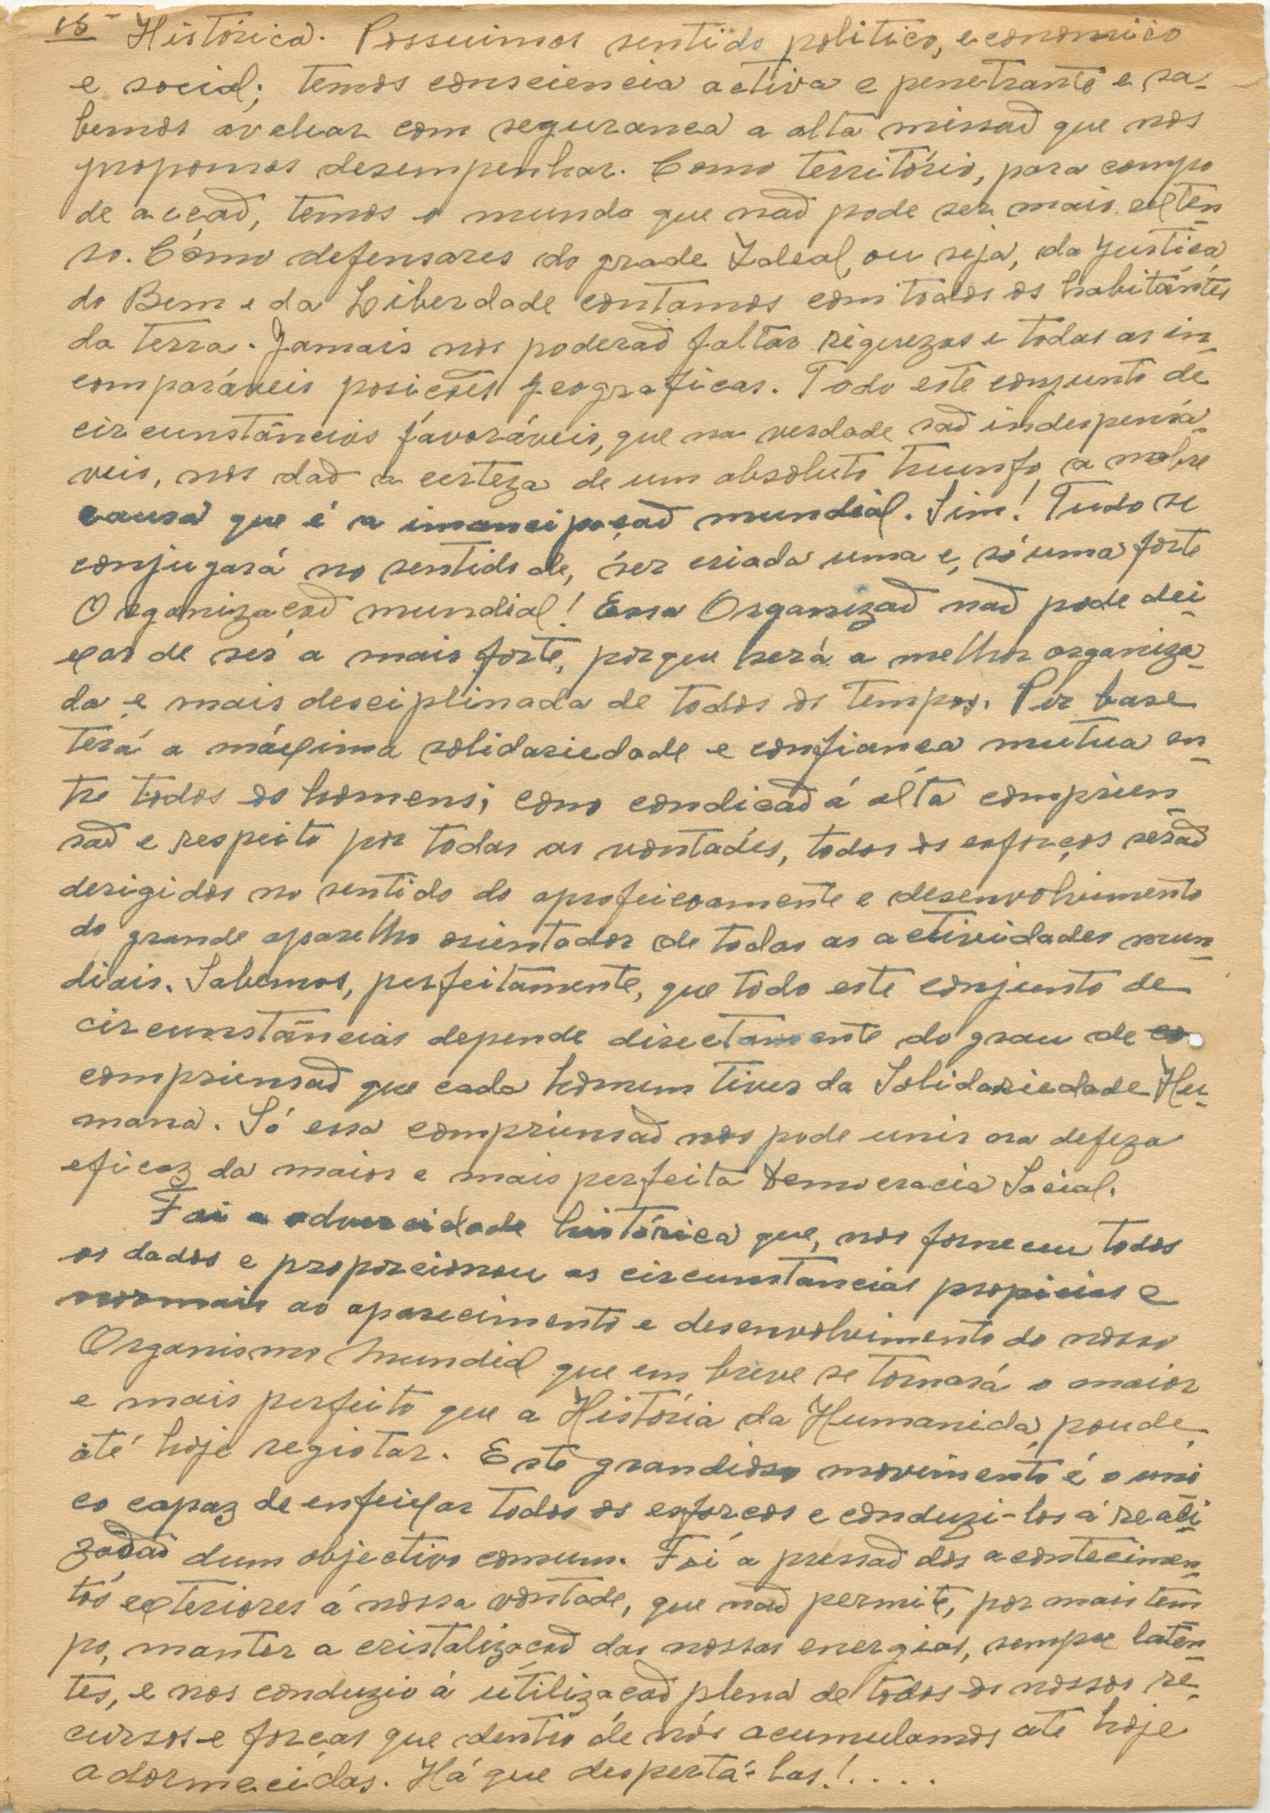 15 Histórica. Possuimos sentido politico, economico
e social; temos consciencia activa e penetrante e sa-
bemos aveluar com seguranca a alta missaõ que nos
propomos desempenhar. Como território, para campo
de acçaõ, temos o mundo que naõ pode ser mais exten-
so. Cómo defensares do grade Ideal, ou seja, da justica
do Bem e da Liberdade contamos com todos os habitántés
da terra. Jamais nos poderaõ faltar riquezas e todas as in-
comparáveis posicoẽs geograficas. Todo este conjunto de
circunstâncias favoráveis, que na verdade saõ indespensá-
veis, nos daõ a certeza de um absoluto triunfo, a nobre
causa que é a imancipaçaõ mundial. Sim! Tudo se
conjugará no sentido de, ser criada uma e, só uma forte
Organizacaõ mundial! Essa Organizaõ naõ pode dei-
xar de ser a mais forte, porque será a melhor organiza-
da e mais desciplinada de todos os tempos. Por base
terá a máxima solidariedade e confianca mutua en-
tre todos os homens; como condicaõ á alta comprien-
saõ e respeito por todas as vontades, todos os esforços seraõ
derigidos no sentido do aprofeicoamente e desenvolvimento
do grande aparelho orientador de todas as actividades mun-
diais. Sabemos, perfeitamente, que todo este conjunto de
circunstâncias depende directamente do grau de co
compriensaõ que cada homem tiver da Solidariedade Hu-
mana. Só essa compriensaõ nos pode unir na defeza
eficaz da maior e mais perfeita Democracia Social.
Foi a adversidade histórica que, nos forneceu todos
os dados e proporcionou as circunstancias propicias e
normais ao aparecimento e desenvolvimento do nosso
Organismo Mundial que em breve se tornará o maior
e mais perfeito que a História da Humanida, poude,
até hoje registar. Este grandioso movimento é o uni
co capaz de enfeixar todos os esforcos e conduzi-los á reali-
zaõaõ dum objectivo comum. Foi a pressaõ dos acontecimen-
tos exteriores á nossa vontade, que naõ permite, por mais tem
po, manter a cristalizacaõ das nossas energias, sempre laten-
tes, e nos conduziu á utilizacaõ plena de todos os nossos re-
cursos e forcas que dentro de nós acumulamos até hoje
adormecidas. Há que despertá-las!....